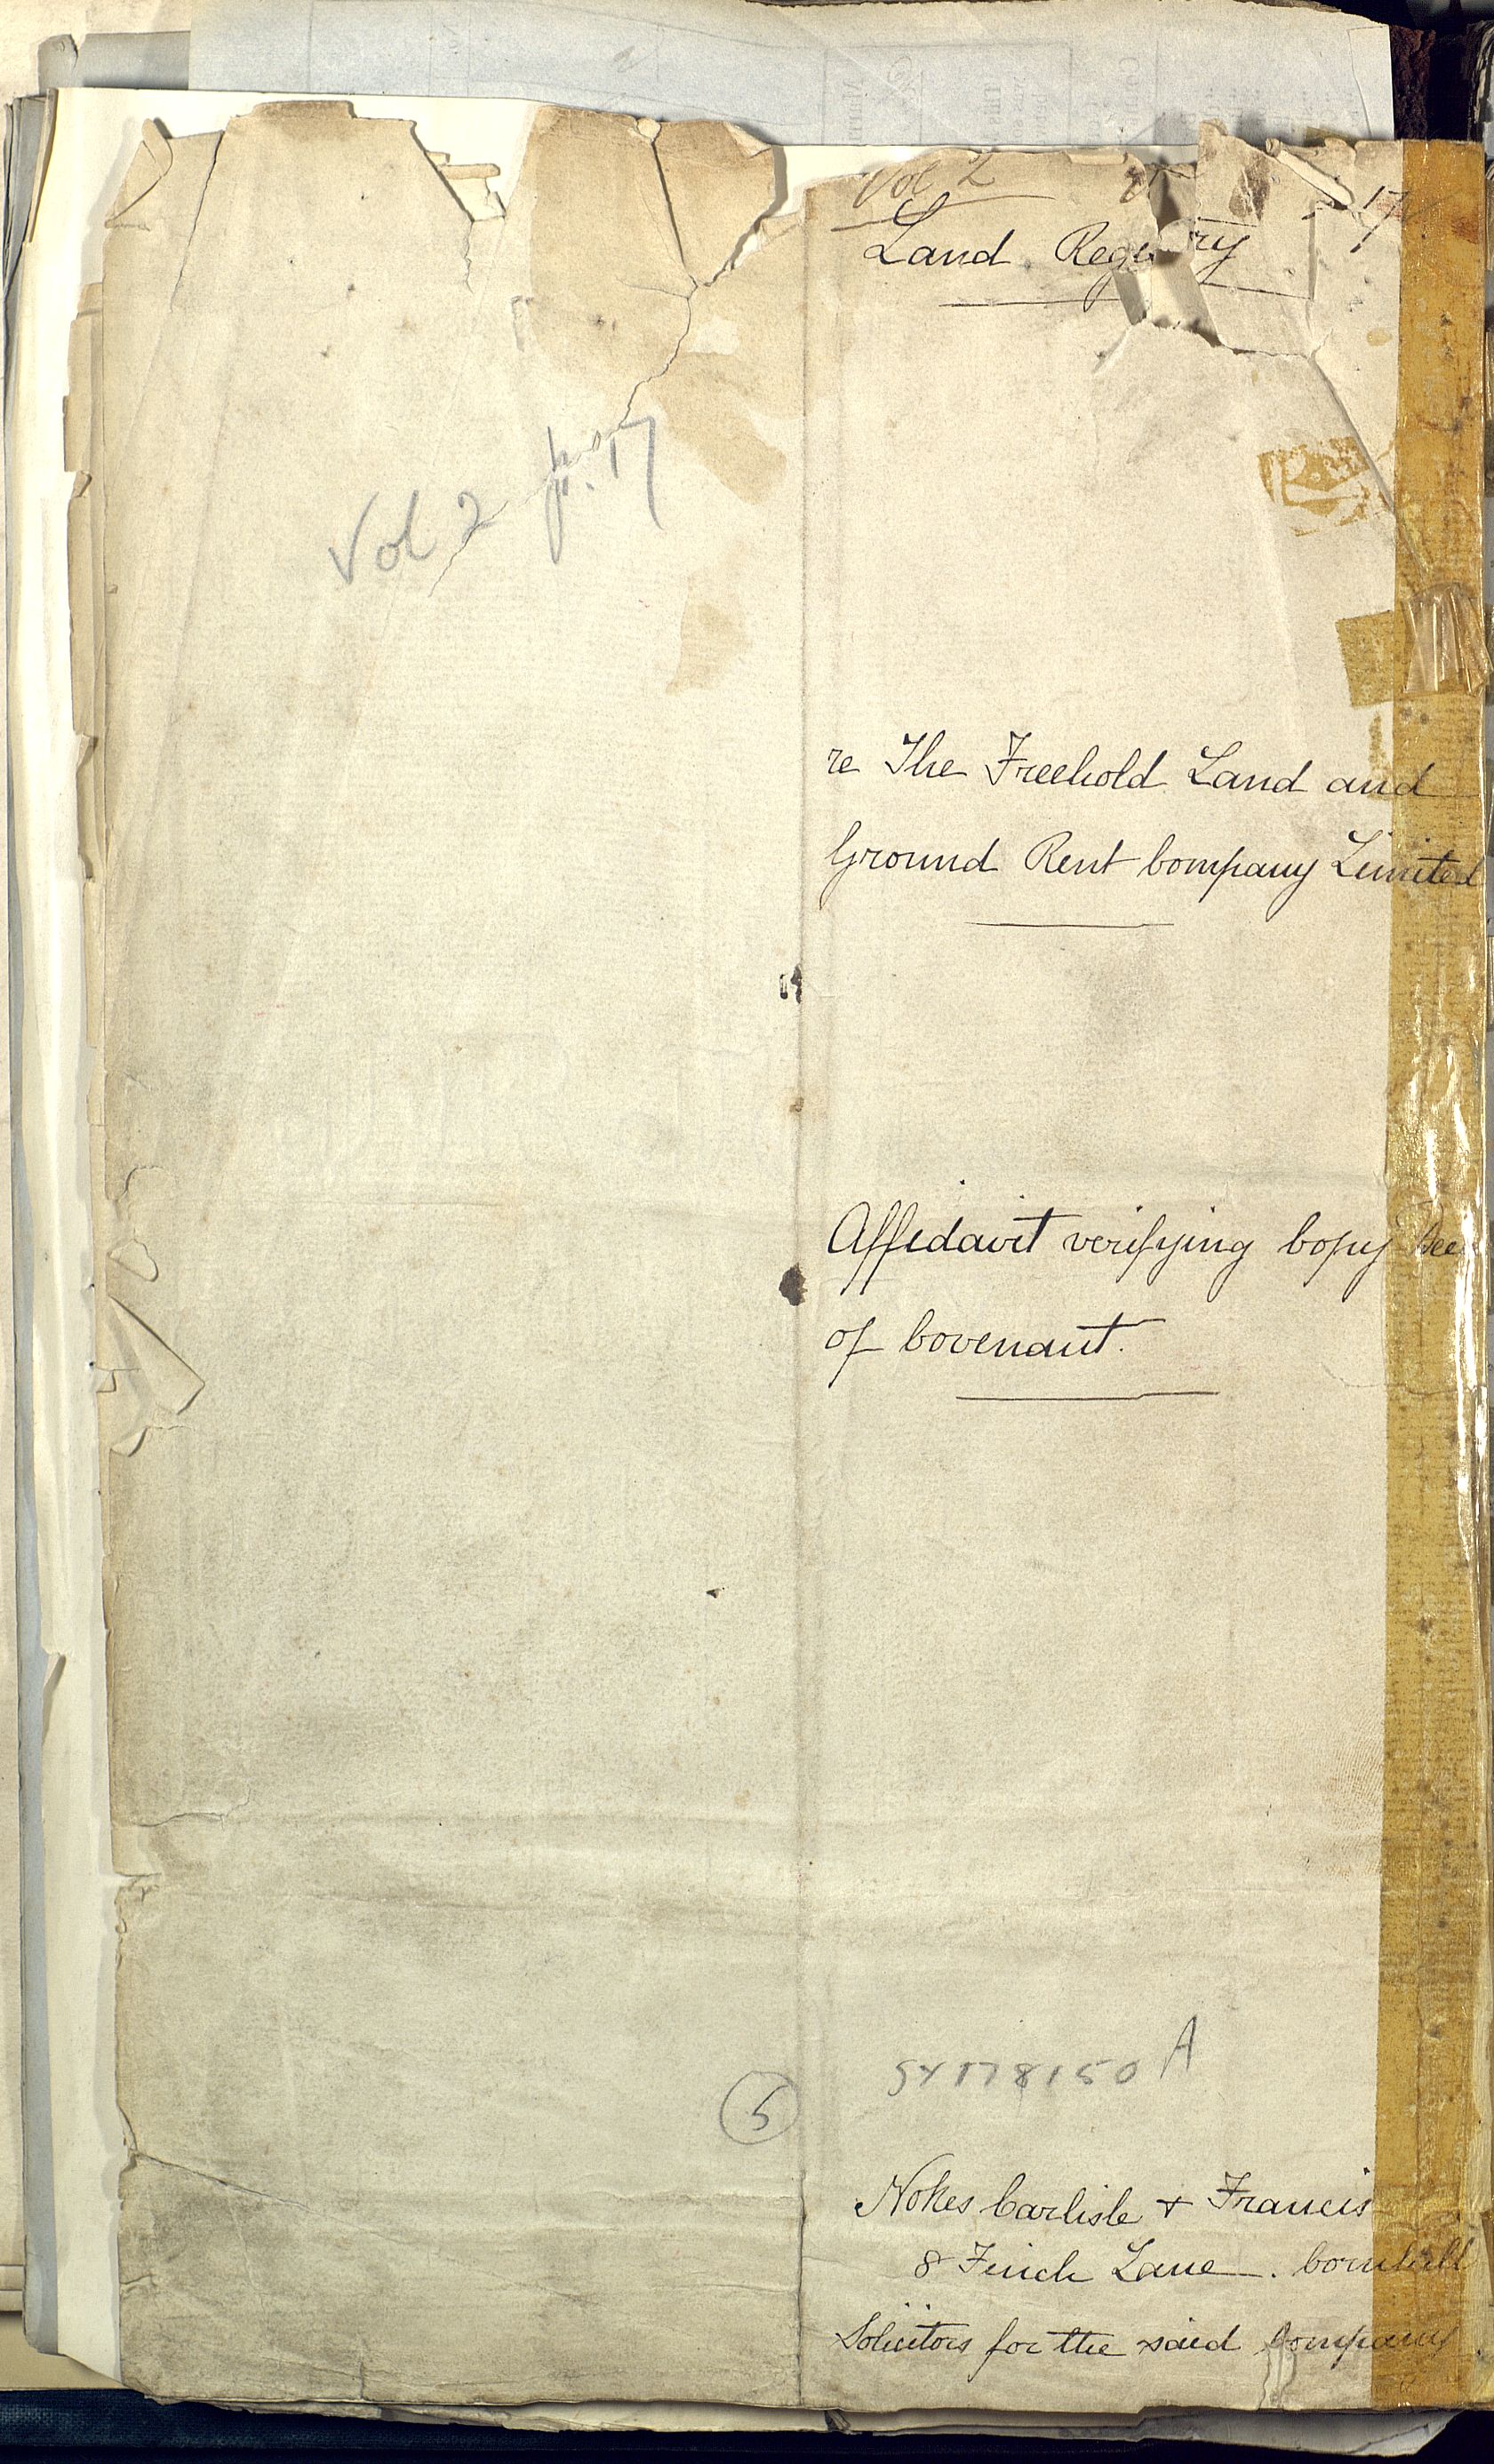 Vol 2 p. 17
Vol 2 17
Land Registry
re The Freehold Land and
Ground Rent Company Limited
Affidavit verifying Copy Dee
of Covenant.
SY178150 A
5
Nokes Carlisle & Francis
8 Finch Lane. Cornhill
Solicitors for the said Company